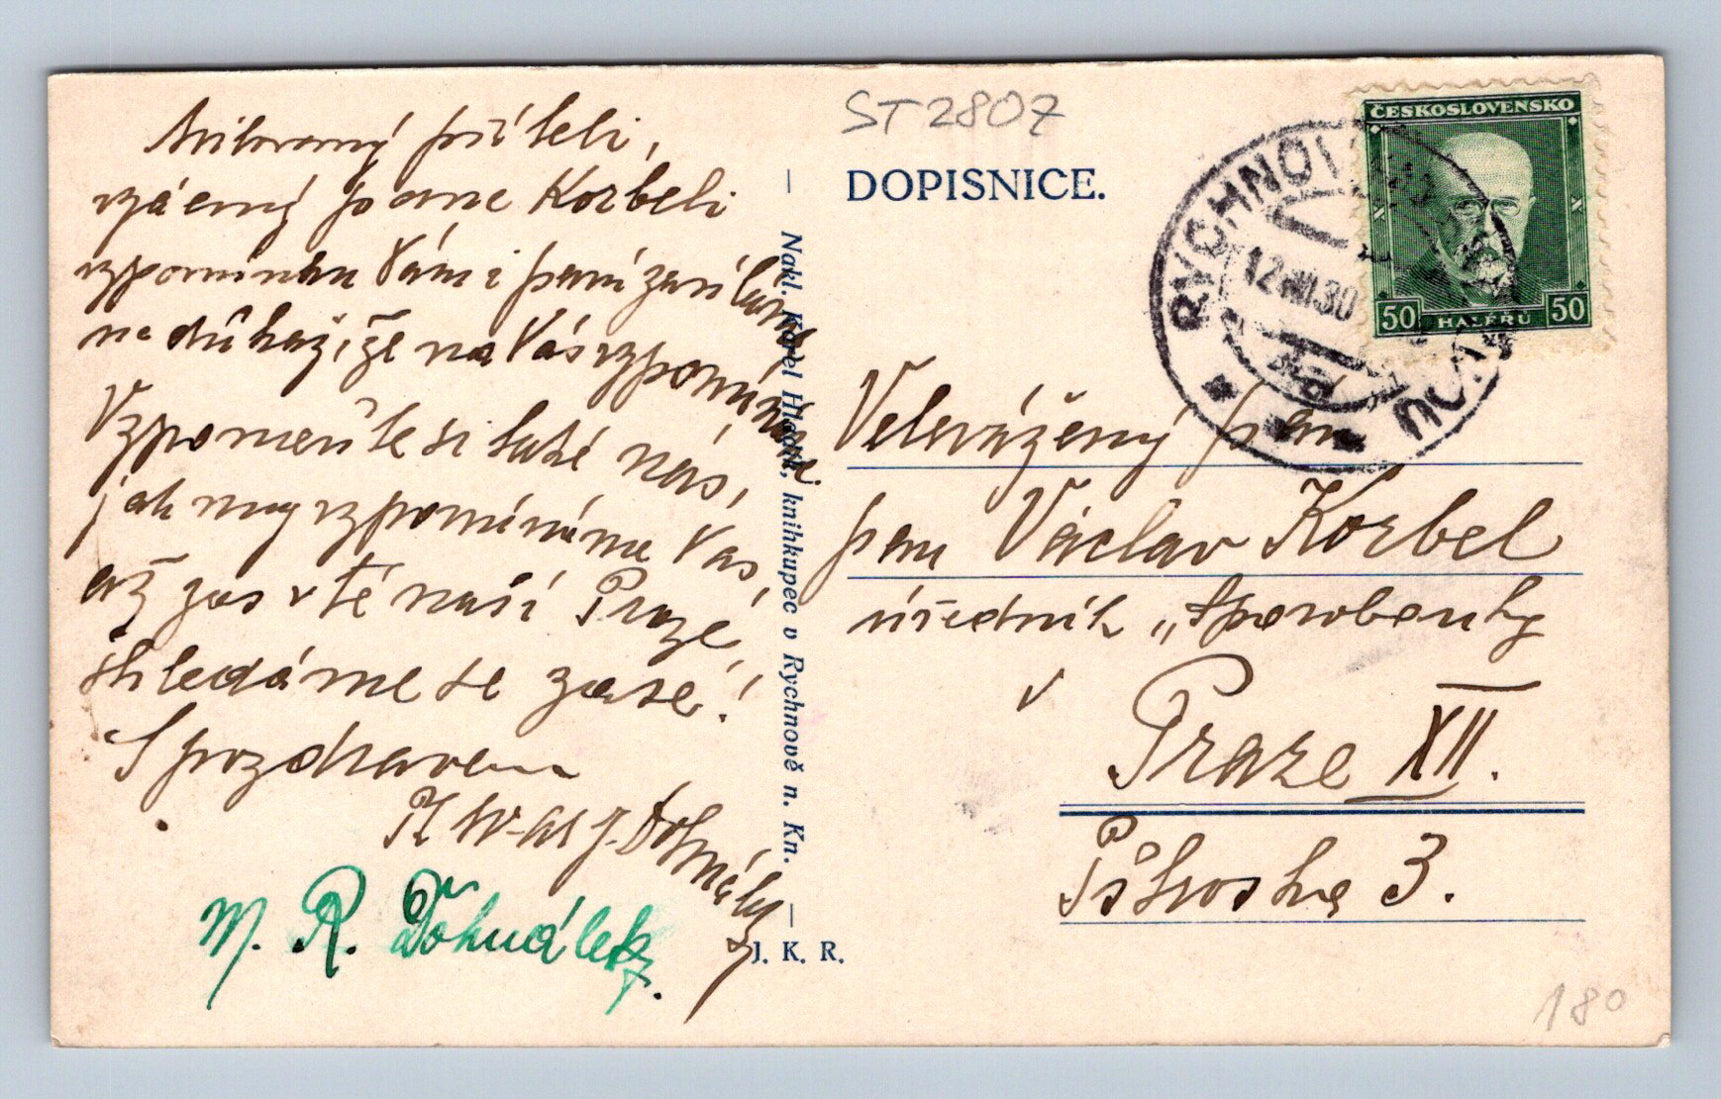 Milovaný příteli,
vzácný pane Korbeli
vzpomínku Vám i paní zasílám
na důkaz, že na Vás vzpomínáme.
Vzpomeňte si také nás,
jak my vzpomínáme Vás,
až zas v té naší Praze
shledáme se zase!
S pozdravem
J. Dohnálek
M. R. Dohnálek.
Nakl. Karel Hladík, knihkupec v Rychnově n. Kn.
J. K. R.
ST2807
DOPISNICE.
ČESKOSLOVENSKO
50 HALÉŘŮ 50
RYCHNOV
12.VIII.30
Velevážený pan
pan Václav Korbel
úředník „Sporobanky
v
Praze XII.
3.
180